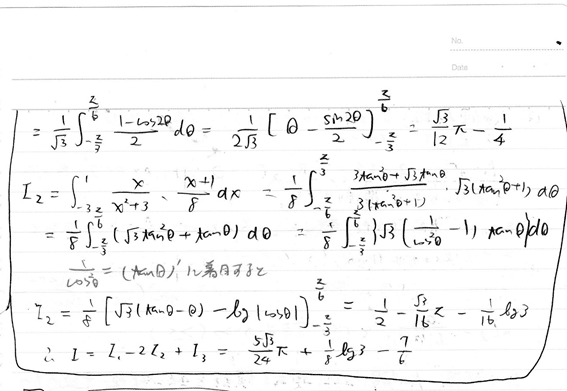 No.
Date
= 1/√3 ∫_{-π/3}^{π/6} (1-cos2θ)/2 dθ = 1/(2√3) [θ - sin2θ/2]_{-π/3}^{π/6} = √3/12 π - 1/4
I₂ = ∫_{-3}^{1} x/(x²+3) · (x+1)/8 dx = 1/8 ∫_{-π/6}^{π/3} (3tan²θ+√3tanθ)/(3(tan²θ+1)) · √3(tan²θ+1) dθ
= 1/8 ∫_{-π/3}^{π/6} (√3tan²θ + tanθ) dθ = 1/8 ∫_{-π/3}^{π/6} {√3(1/cos²θ - 1), tanθ} dθ
1/cos²θ = (tanθ)' に着目すると
I₂ = 1/8 [√3(tanθ-θ) - log|cosθ|]_{-π/3}^{π/6} = 1/2 - √3/16 π - 1/16 log3
∴ I = I₁ - 2I₂ + I₃ = 5√3/24 π + 1/8 log3 - 7/6